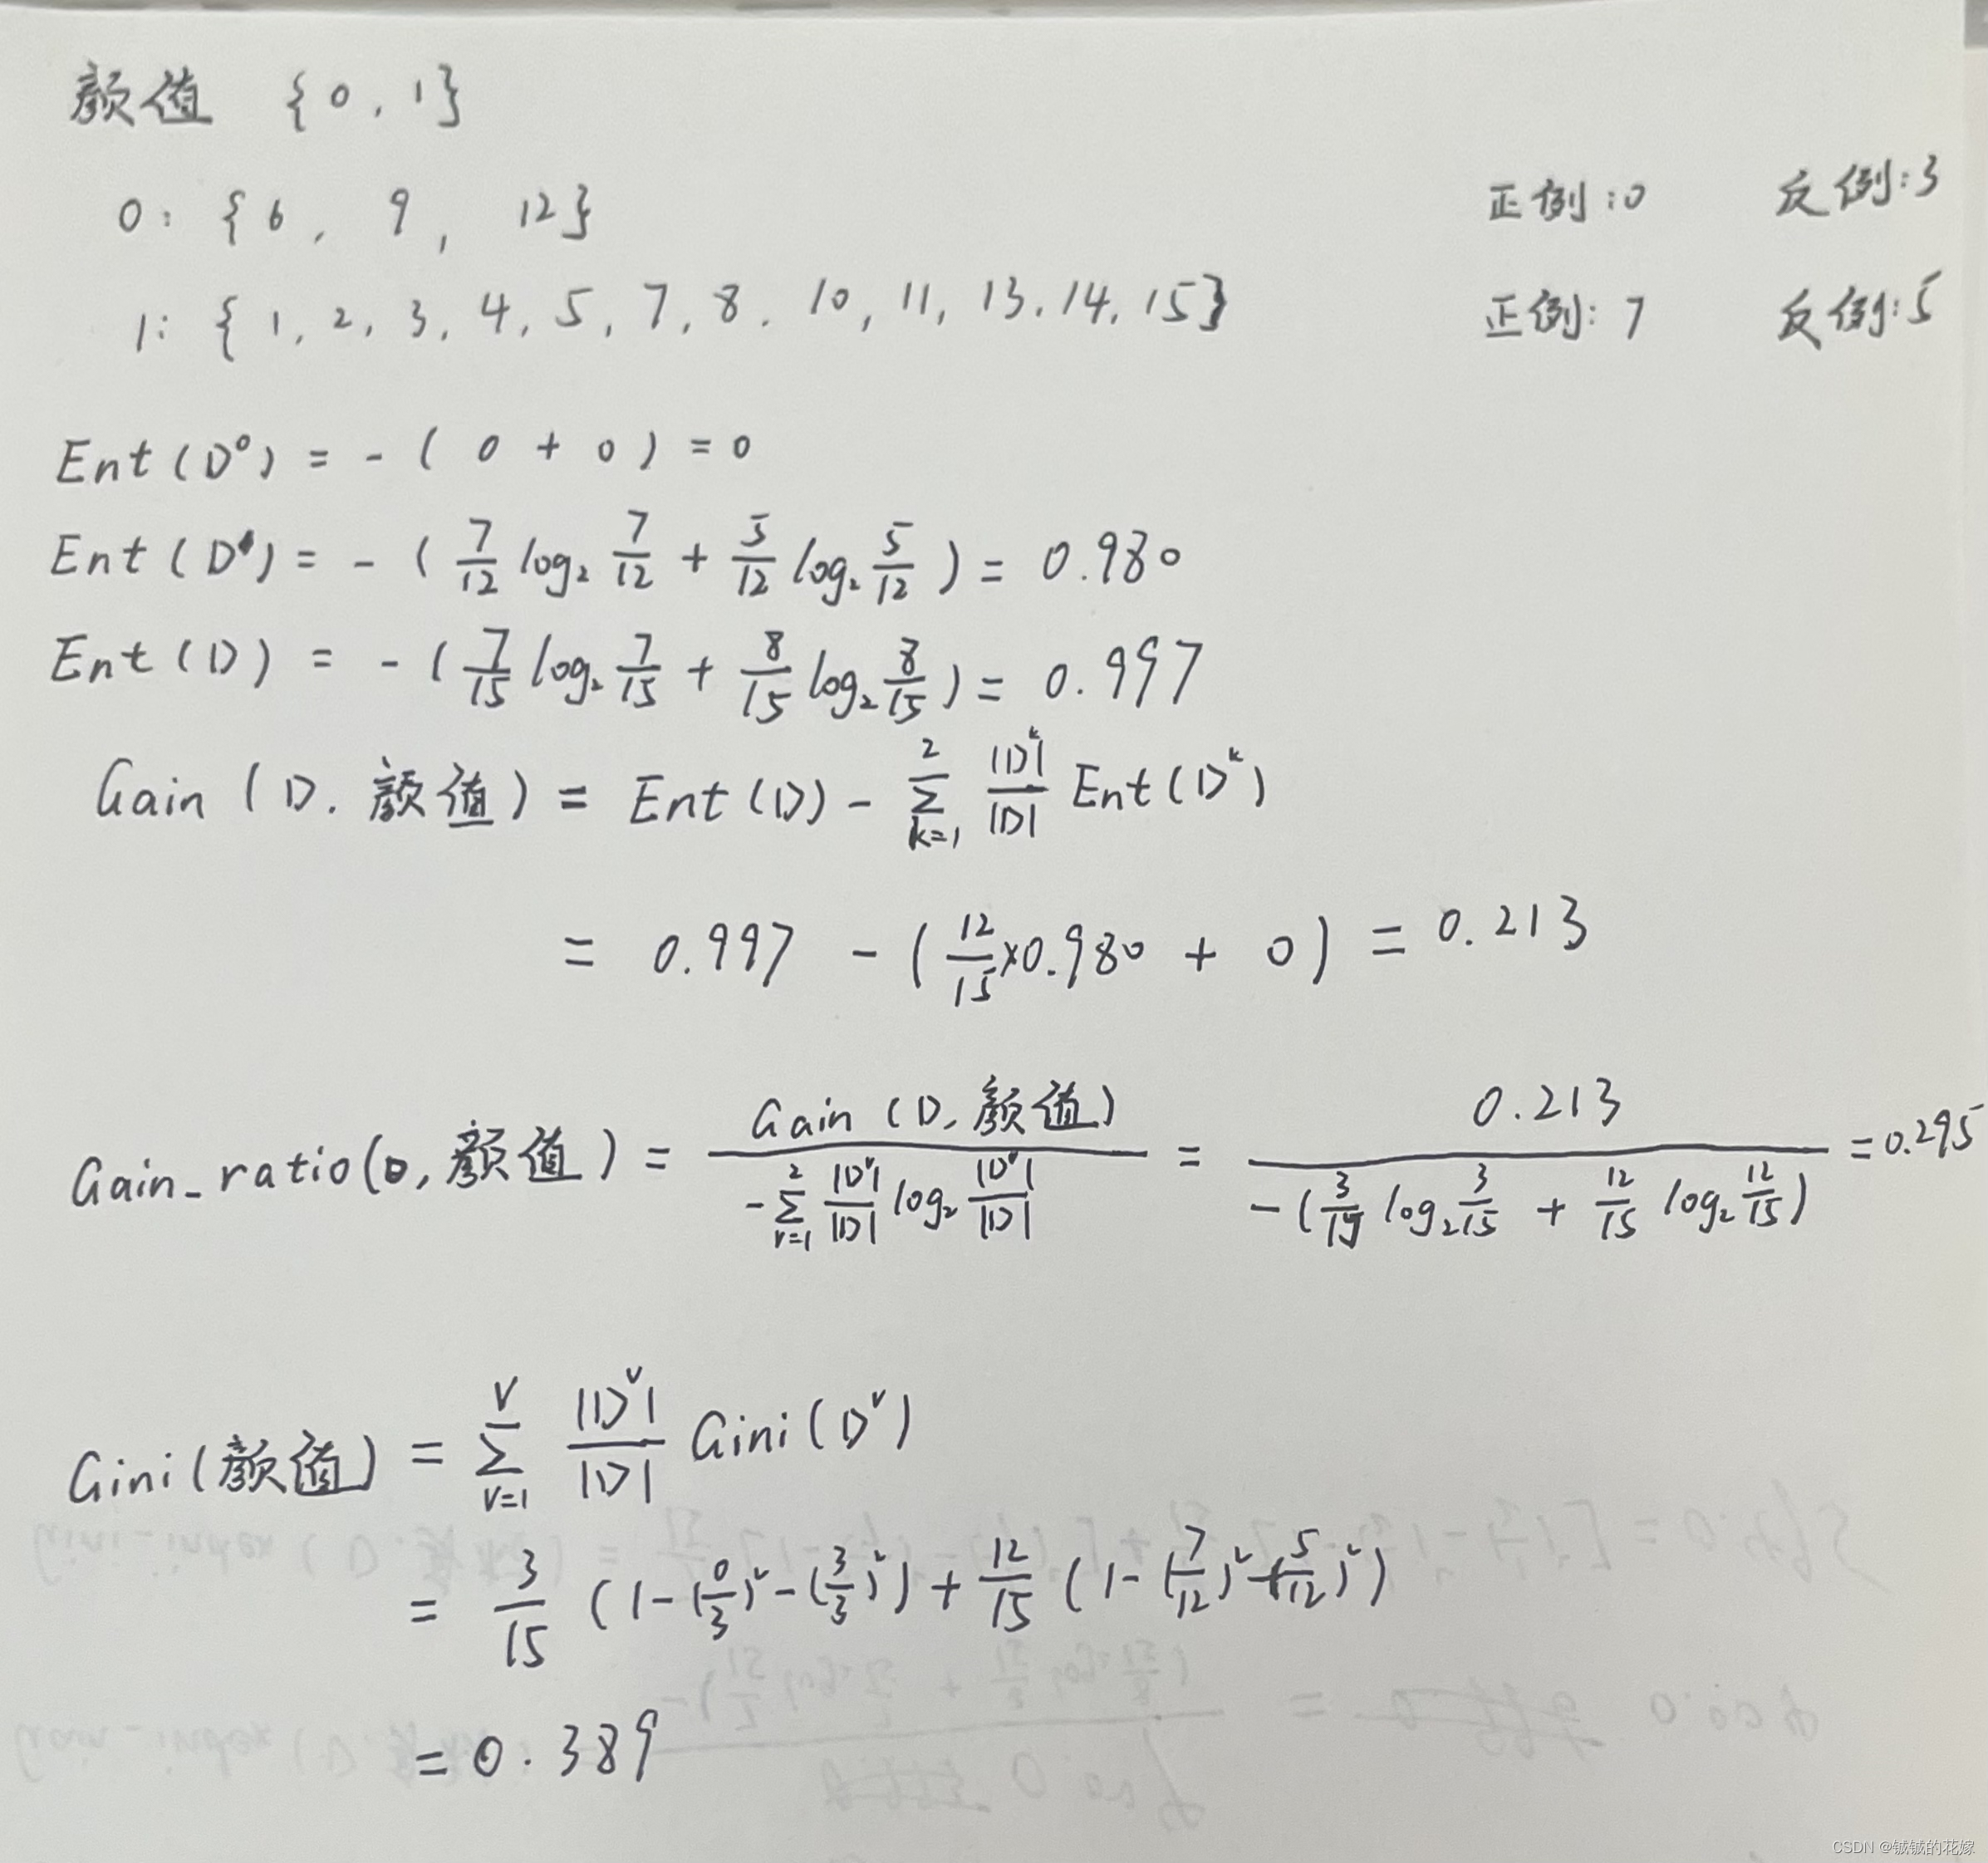 颜值 {0, 1}
0: {6, 9, 12} 正例:0 反例:3
1: {1, 2, 3, 4, 5, 7, 8, 10, 11, 13, 14, 15} 正例: 7 反例:5
Ent(D⁰) = -(0 + 0) = 0
Ent(D¹) = -(7/12 log₂ 7/12 + 5/12 log₂ 5/12) = 0.980
Ent(D) = -(7/15 log₂ 7/15 + 8/15 log₂ 8/15) = 0.997
Gain(D, 颜值) = Ent(D) - Σ_{k=1}^{2} |D^k|/|D| Ent(D^k)
= 0.997 - (12/15 × 0.980 + 0) = 0.213
Gain_ratio(D, 颜值) = Gain(D, 颜值) / -Σ_{v=1}^{2} |D^v|/|D| log₂ |D^v|/|D| = 0.213 / -(3/15 log₂ 3/15 + 12/15 log₂ 12/15) = 0.295
Gini(颜值) = Σ_{v=1}^{V} |D^v|/|D| Gini(D^v)
= 3/15 (1-(0/3)²-(3/3)²) + 12/15 (1-(7/12)²-(5/12)²)
= 0.389
CSDN @铖铖的花嫁